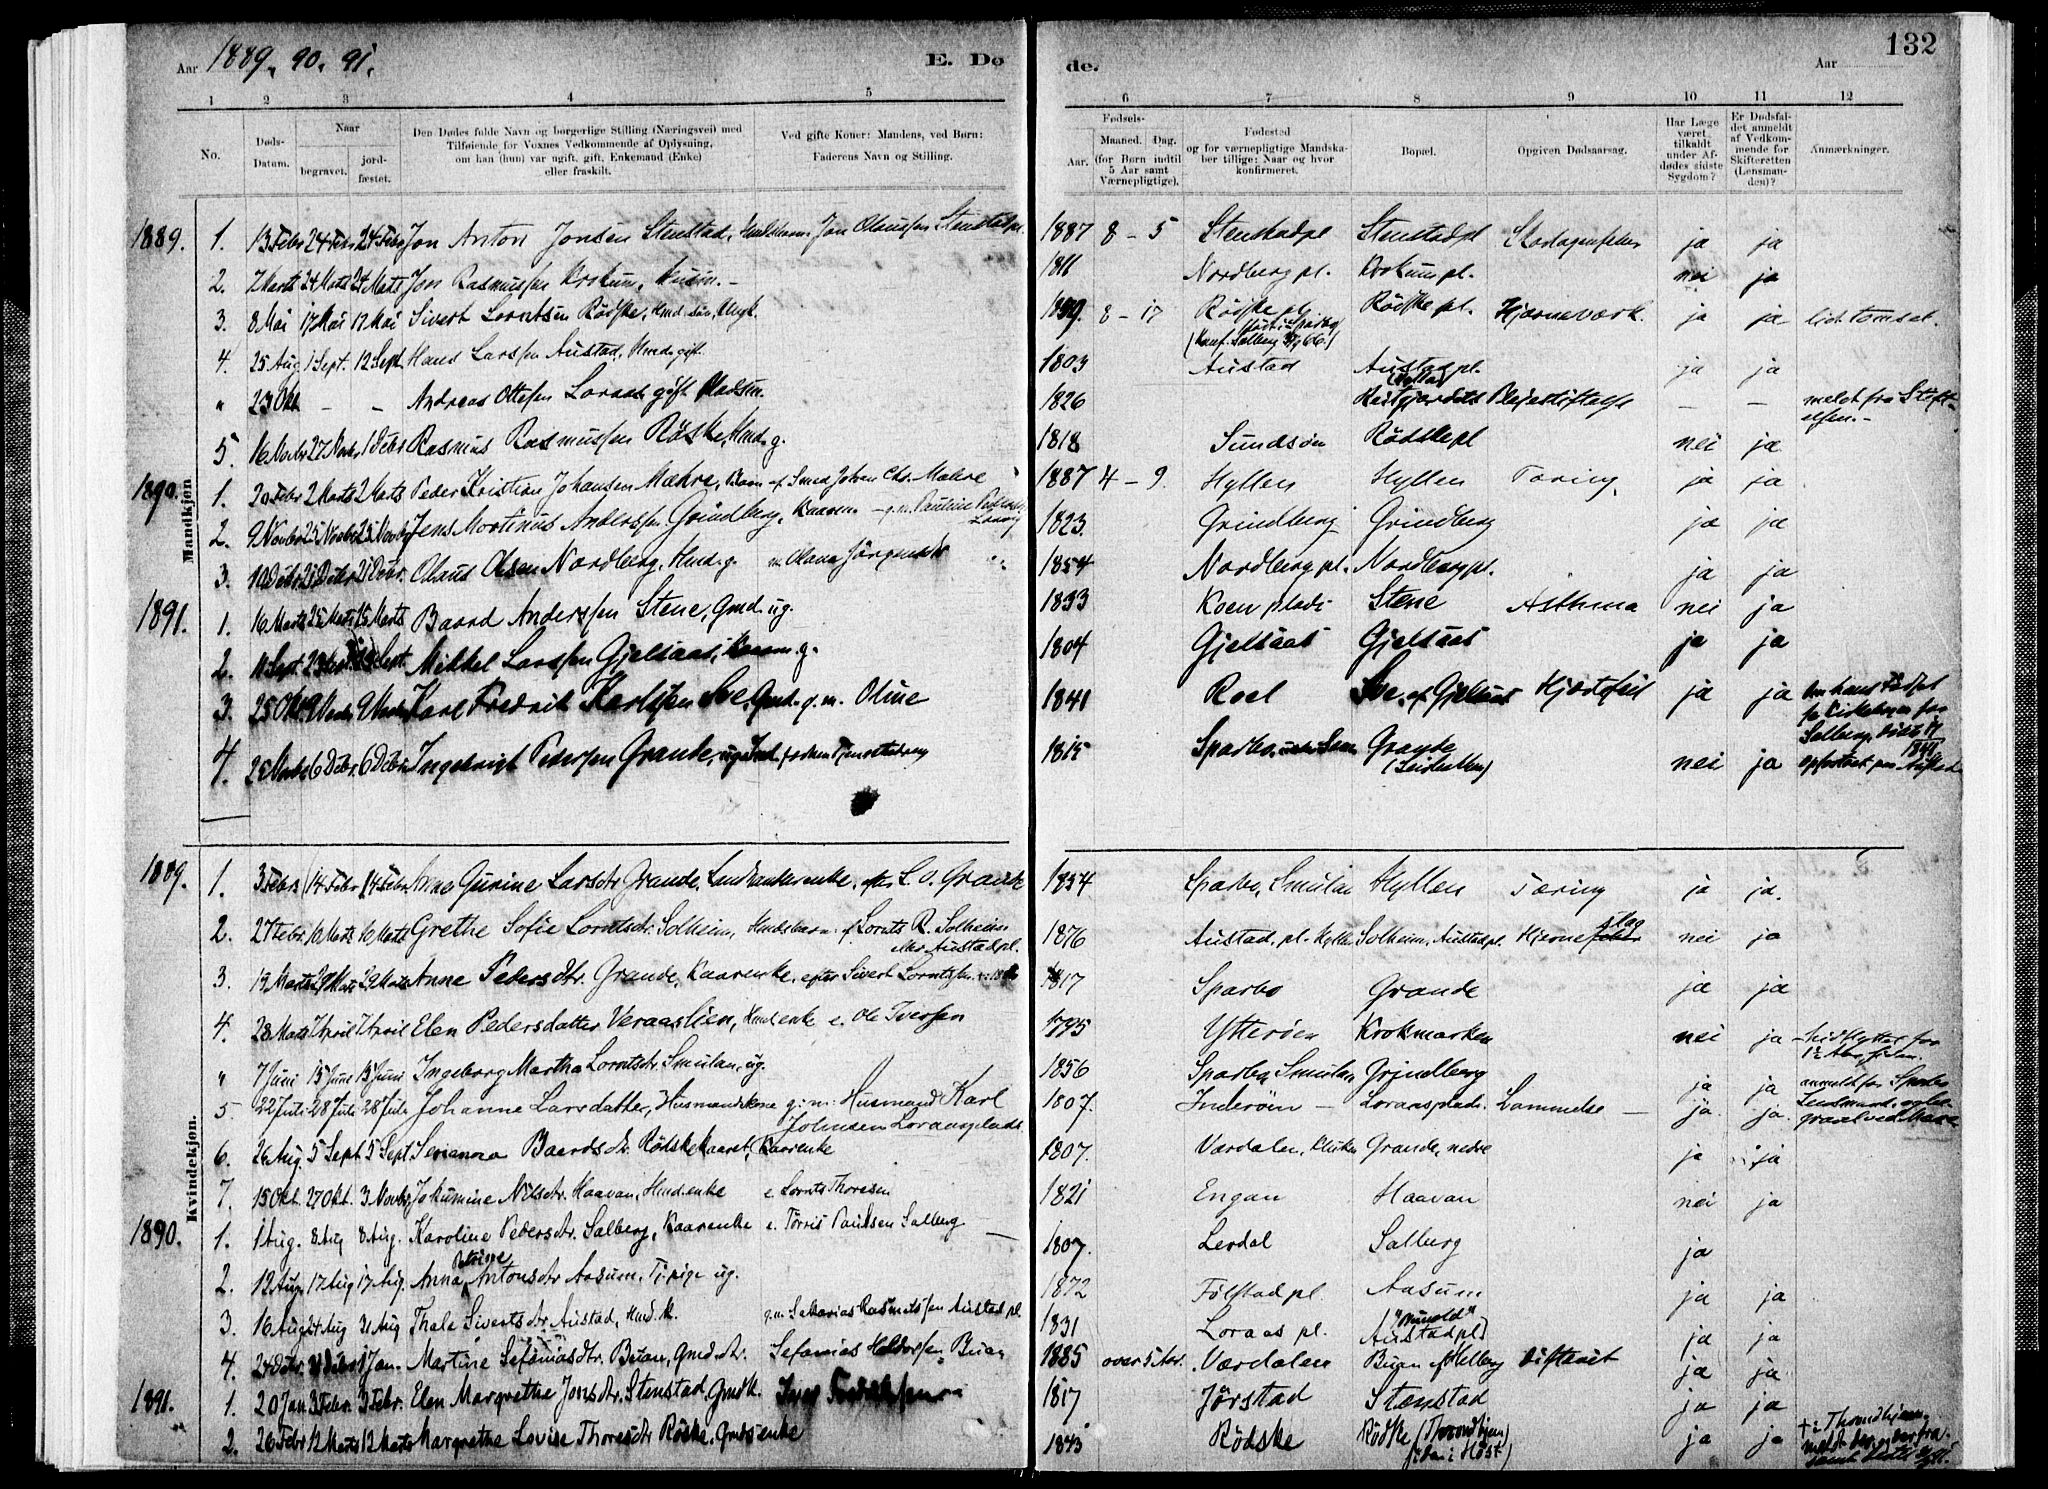 Aar 1889, 90. 91.
E. Dø
de.
Aar
132
1 2 3 4 5 6 7 8 9 10 11 12
No.
Døds-Datum.
Naar
begravet.
jord-fæstet.
Den Dødes fulde Navn og borgerlige Stilling (Næringsvei) med
Tilføiende for Voxnes Vedkommende af Oplysning,
om han (hun) var ugift, gift, Enkemand (Enke)
eller fraskilt.
Ved gifte Koner: Mandens, ved Børn:
Faderens Navn og Stilling.
Fødsels-
Aar.
Maaned. Dag.
(for Børn indtil
5 Aar samt
Værnepligtige).
Fødested
og for værnepligtige Mandska-
ber tillige: Naar og hvor
konfirmeret.
Bopæl.
Opgiven Dødsaarsag.
Har Læge
været
tilkaldt
under Af-
dødes sidste
Sygdom?
Er Dødsfal-
det anmeldt
af Vedkom-
mende for
Skifteretten
(Lensman-
den)?
Anmærkninger.
Mandkjøn
1889. 1. 13 Febr 24 Febr 24 Febr Jon Anton Jonsen Stenstad, Jon Olaussen Stenstadpl. 1887 8 - 5 Stenstadpl Stenstadpl ja ja
2. 7 Marts 24 Marts 24 Marts Jon Rasmussen Krokum, 1811 Nordberg pl. Krokum pl. nei ja
3. 8 Mai 17 Mai 17 Mai Sivert Lorntsen Rödske, Hmd. søn, Ungk. 8 - 17 Rödske pl. Rödske pl. Hjerneværk. ja ja lidt tomset.
4. 25 Aug 1 Sept. 12 Sept Hans Larssen Austad, Hmd. gift. 1803 Austad Austad pl. ja ja
" 23 Okt - - Andreas Ottesen Loraas gift Pladsm. 1826 Reitgjærdets Pleiestiftelse - - meldt fra Stift-
elsen.-
5. 16 Novbr 27 Novbr 1 Debr Rasmus Rasmussen Röske, Hmd. g. 1818 Sundsøen Rödskepl nei ja
1890. 1. 20 Febr 2 Marts 2 Marts Peder Kristian Johansen Mæhre, Barn af Smed Johan Chr. Mæhre 1887 4 - 9. Hyllen Hyllen Tæring, ja ja
2. 9 Novbr 25 Novbr 25 Novbr Jens Mortinus Anderssen Grindberg, Kaarm. - g.m. Pauline 1823. Grindberg Grindberg ja ja
3. 10 Debr 21 Debr 21 Debr. Olaus Olsen Nordberg, Hmd. g. m. Olava Jörgensdtr 1854 Nordberg pl. Nordberg pl. ja ja
1891. 1. 16 Marts 25 Marts 25 Marts Baard Anderssen Stene, Gmd. ug. 1833 Koen plads Stene Asthma nei ja
2. 11 Sept. Sept. Mikkel Larssen Gjelsaas, Kaarm. g. 1804 Gjelsaas Gjelsaas ja ja
3. 25 Okt 9 Novbr 9 Novbr Karl Fredrik Karlssen Sve, Gmd. g. m. Oline 1841 Roel Sve, af Gjelsaas Hjertefeil ja ja
4. 25 Novbr 6 Debr 6 Debr Ingebrigt Pederssen Grande, 1815 Sparbo, Grande nei ja
Kvindekjøn.
1889. 1. 3 Febr 14 Febr 14 Febr. Anne Gurine Larsdtr Grande, Landhandlerenke, efter L. O. Grande 1854 Sparbo, Smulan Hyllen Tæring ja ja.
2. 27 Febr. 16 Marts 16 Marts Grethe Sofie Lorntsdtr Solheim, Husmdsbarn af Lornts R. Solheim
Austadpl. 1876 Austad, pl. Hylla Solheim, Austadpl. Hjerneslag nei ja
3. 19 Marts 29 Marts 29 Marts Anne Pedersdtr. Grande, Kaarenke, efter Sivert Lorntssen 1817 Sparbo Grande ja ja
4. 28 Marts 7 April 7 April Elen Pedersdatter Veraaslien, Hmd. enke e. Ole Iversen 1795 Ytterøen Krokmarken nei ja
" 7 Juni 15 Juni 15 Juni Ingeborg Martha Lorntsdtr. Smulan, ug. 1856 Sparbo, Smulan, Grindberg ja ja
5. 22 Juli 28 Juli 28 Juli Johanne Larsdatter, Husmandskone g. m. Husmand Karl
Johnsen Loraasplads 1807. Inderøen - Loraasplads. Lammelse - ja. ja.
6. 26 Aug. 5 Sept. 5 Sept Serianna Baardsdtr. Rödske Kaaret, Kaarenke 1807. Værdalen, Grande, nedre ja ja
7. 15 Okt. 27 Okt. 3 Novbr Jokumine Nilsdtr. Haavan, Hmd. enke e. Lornts Thoresen 1821 Engan Haavan nei ja
1890. 1. 1 Aug. 8 Aug 8 Aug. Karoline Pedersdtr. Salberg, Kaarenke e. Törris Paulsen Salberg 1807. Lerdal Salberg ja
2. 12 Aug. 17 Aug 17 Aug. Anna Petrine Antonsdtr Aasum, Tj. pige ug. 1872 Fölstad pl. Aasum ja ja
3. 16 Aug 24 Aug 31 Aug Thale Sivertsdtr Austad, Hmd. k. g.m. Sakarias Rasmussen Austad pl. 1831 Loraas pl. Austadpl) ja ja
4. 24 Debr. 1 Jan. Martine Sefaniasdtr. Buan, Gmd. dtr. Sefanias Haldorsen Buan 1885 over 5 Aar. Værdalen Buan af Helberg Difterit ja ja
1891. 1. 20 Jan 3 Febr. 3 Febr. Elen Margrethe Jonsdtr. Stenstad, Gmdk. 1817 Jörstad Stenstad ja ja
2. 26 Febr 12 Marts 12 Marts Margrethe Lovise Thoresdtr Röske, Gmdsenke 1843 Rödske Rödske (Throndhjem
siden i Høst) ja ja + i Throndhjem